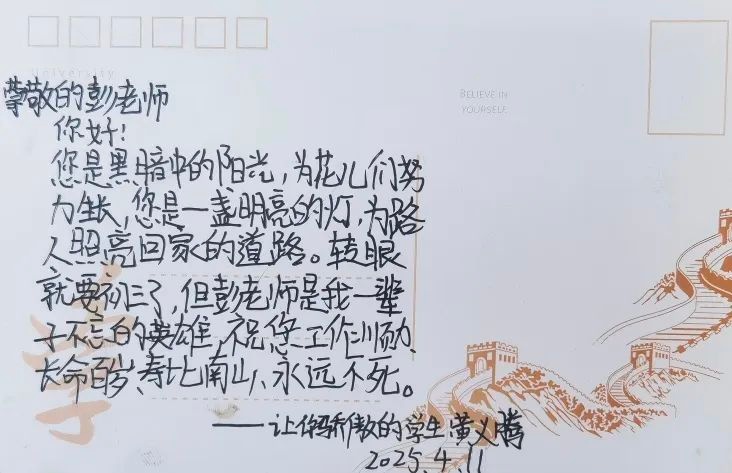 University
BELIEVE IN
YOURSELF
尊敬的彭老师
你好!
您是黑暗中的阳光,为花儿们努
力生长,您是一盏明亮的灯,为路
人照亮回家的道路。转眼
就要初三了,但彭老师是我一辈
子不忘的英雄,祝您工作顺励、
长命百岁、寿比南山、永远不死。
——让你骄傲的学生黄义腾
2025.4.11